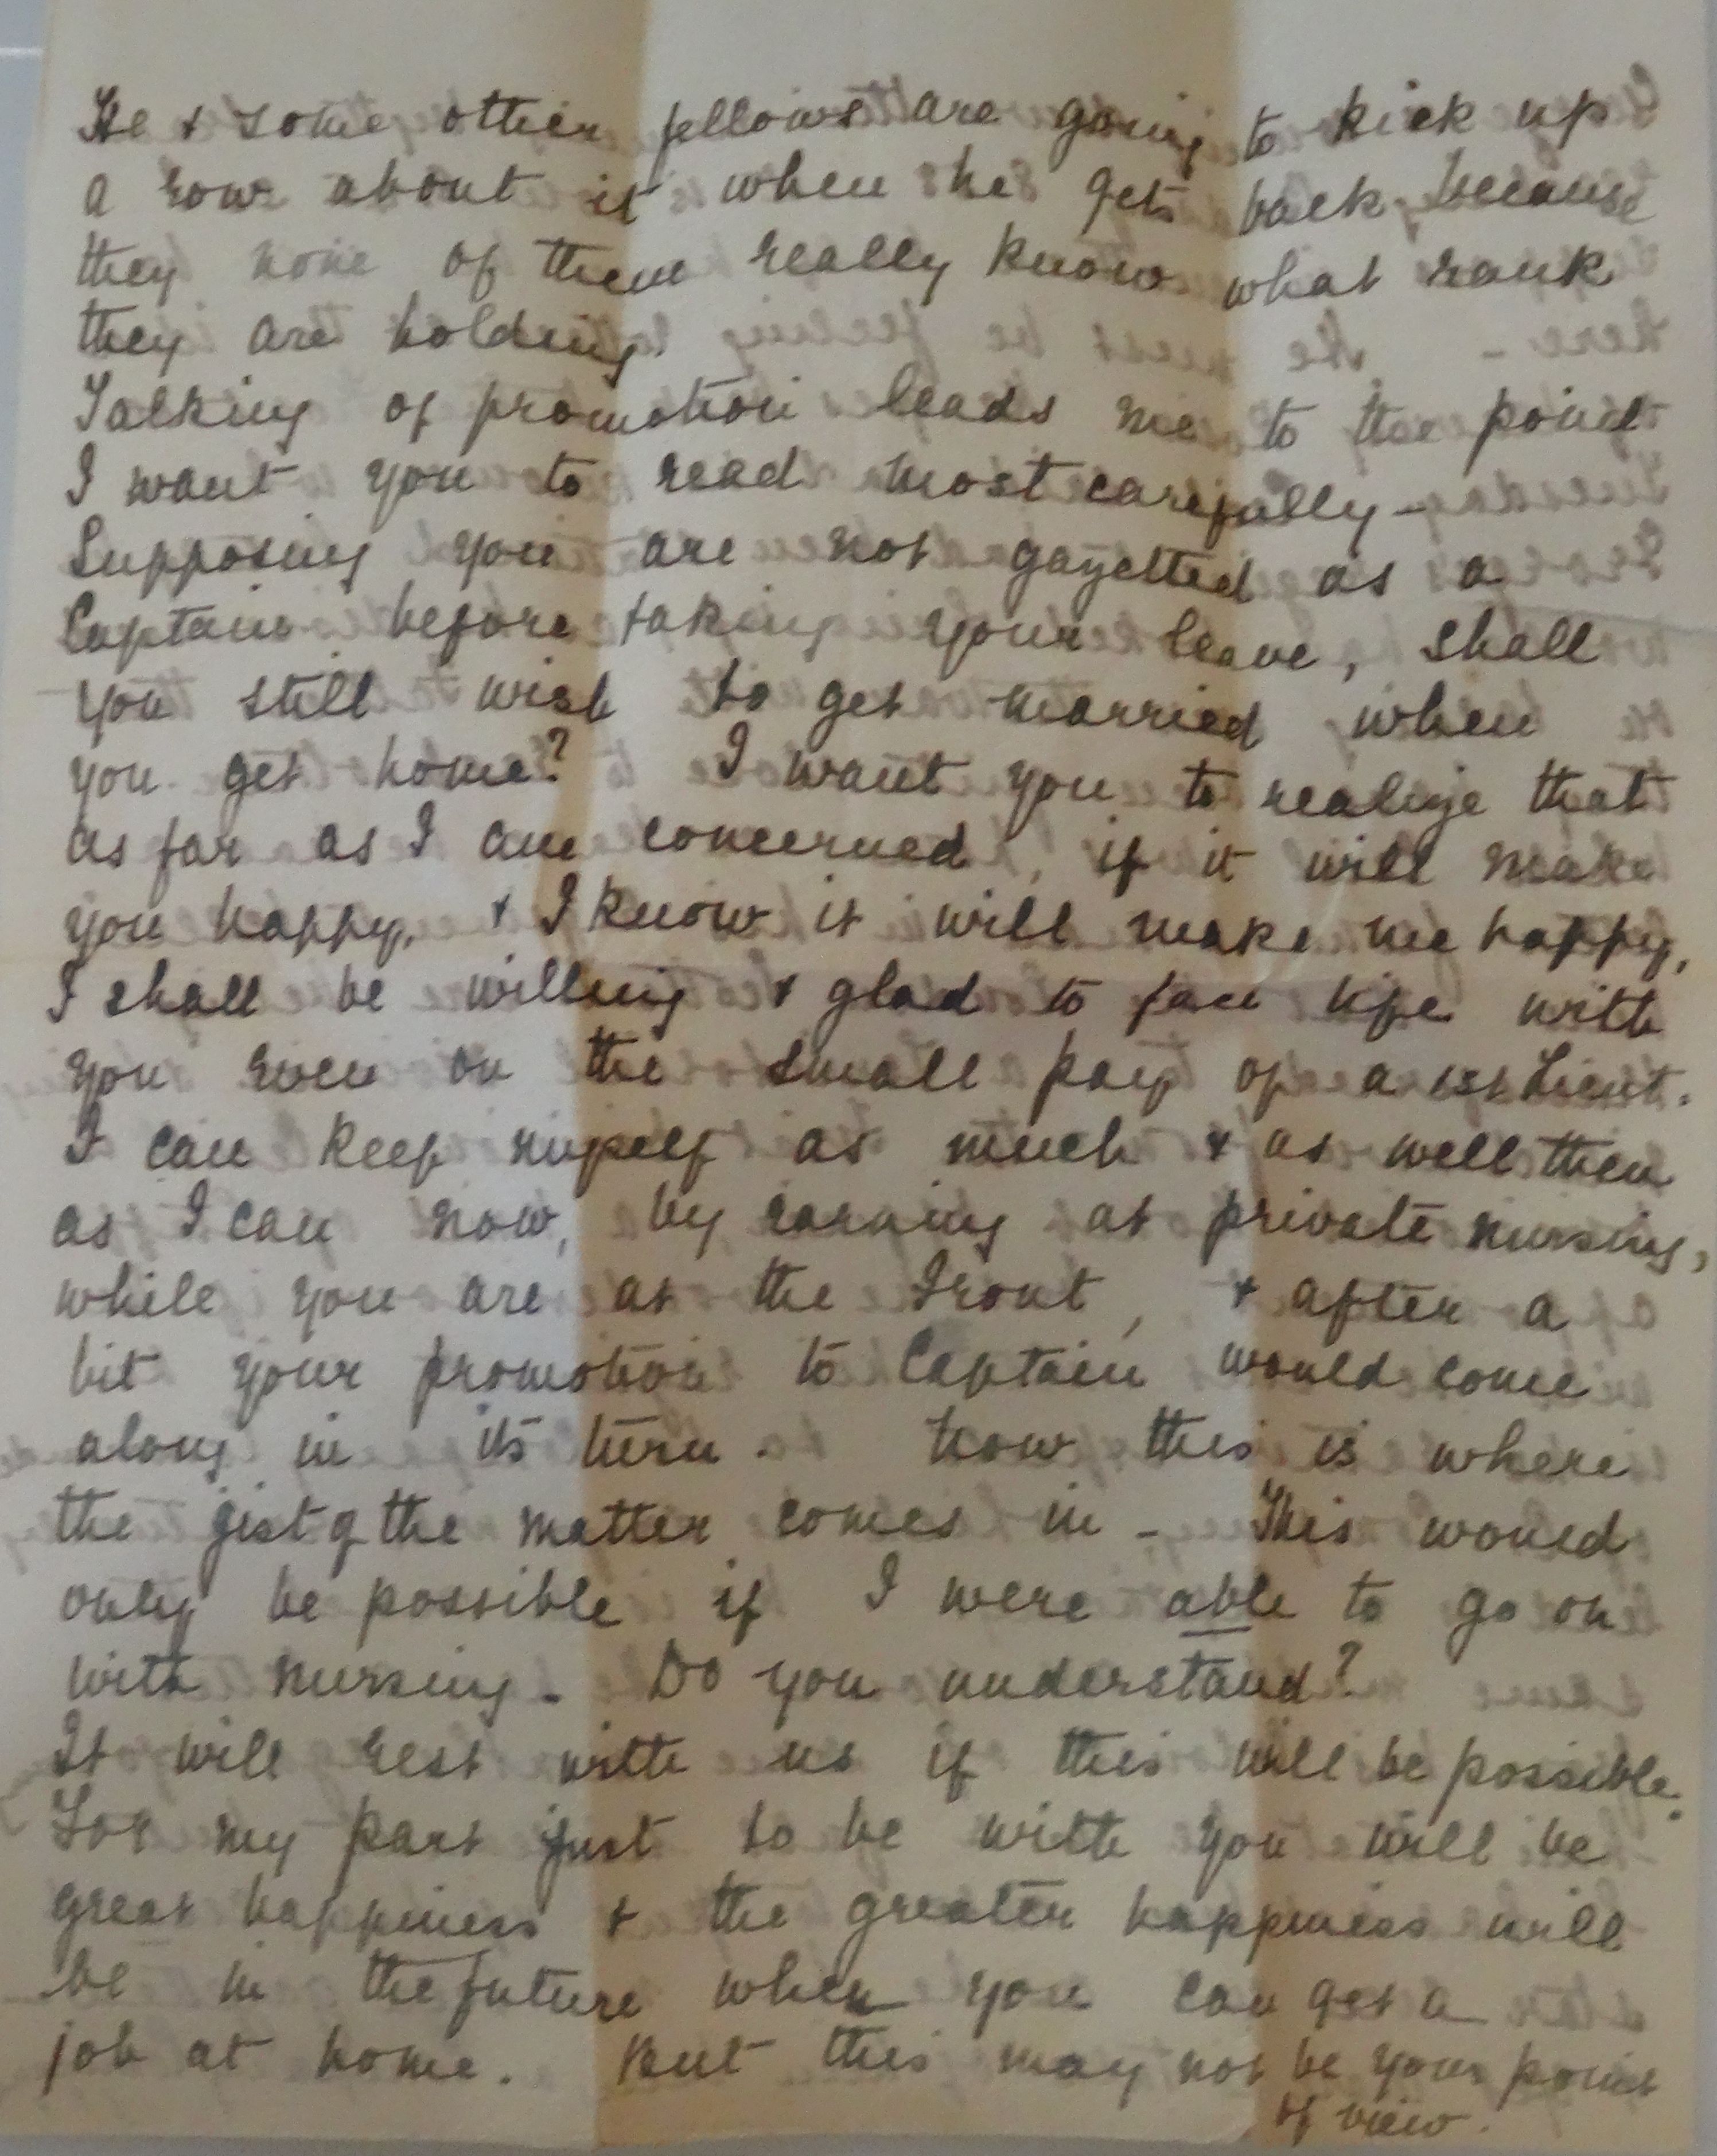 He & some other fellows are going to kick up
a row about it when he gets back because
they none of them really know what rank
they are holding.
Talking of promotion leads me to the point
I want you to read most carefully –
Supposing you are not gazetted as a
Captain before taking your leave, shall
you still wish to get married when
you get home? I want you to realize that
as far as I am concerned, if it will make
you happy, & I know it will make me happy,
I shall be willing & glad to face life with
you even on the small pay of a 1st Lieut.
I can keep myself as much & as well then
as I can now, by earning at private nursing,
while you are at the Front, & after a
bit your promotion to Captain would come
along in its turn. Now this is where
the gist of the matter comes in – This would
only be possible if I were able to go on
with nursing. Do you understand?
It will rest with us if this will be possible.
For my part just to be with you will be
great happiness & the greater happiness will
be in the future when you can get a
job at home. But this may not be your point
of view.